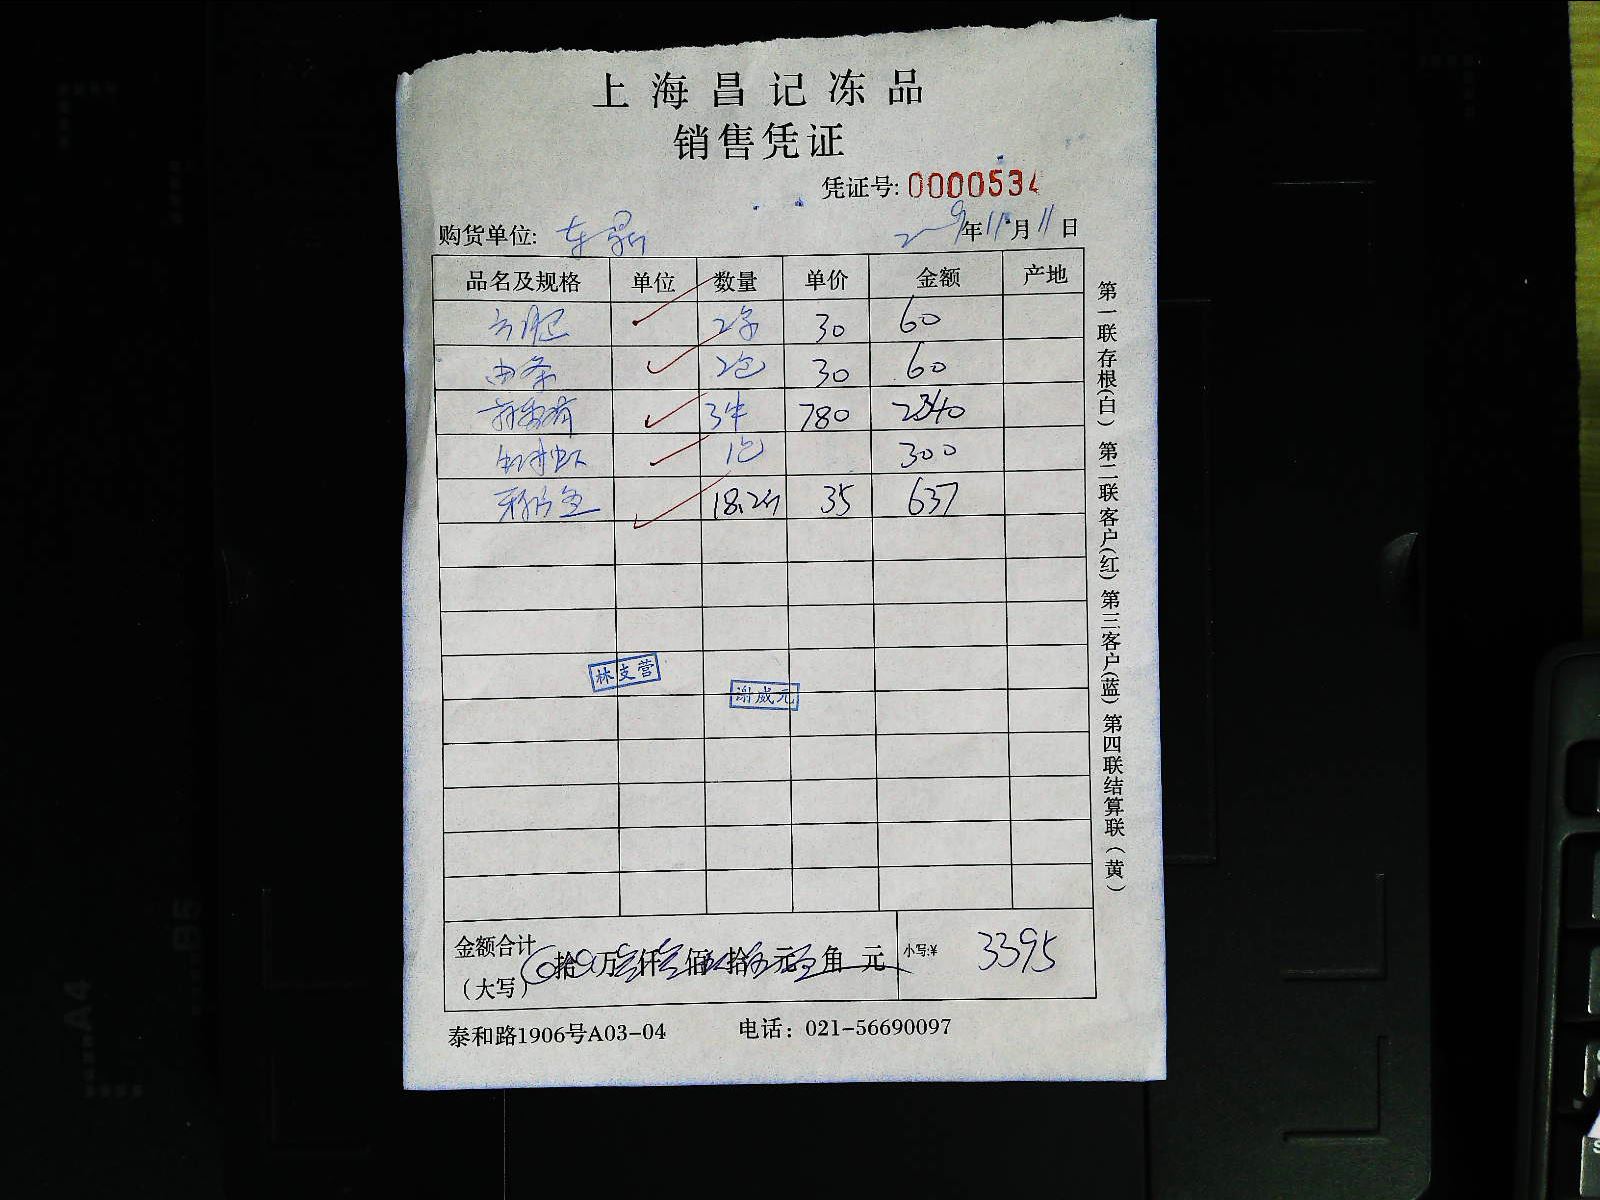 上海昌记冻品
销售凭证
凭证号: 0000534
购货单位: 东鼎 年11月11日
品名及规格 单位 数量 单价 金额 产地
30 60
2包 30 60
3件 780 2340
1包 300
18.2斤 35 637
林支营
谢威元
金额合计
(大写) 拾 万 仟 佰 拾 元 角 元 小写:¥ 3395
泰和路1906号A03-04 电话: 021-56690097
第一联存根(白) 第二联客户(红) 第三客户(蓝) 第四联结算联(黄)